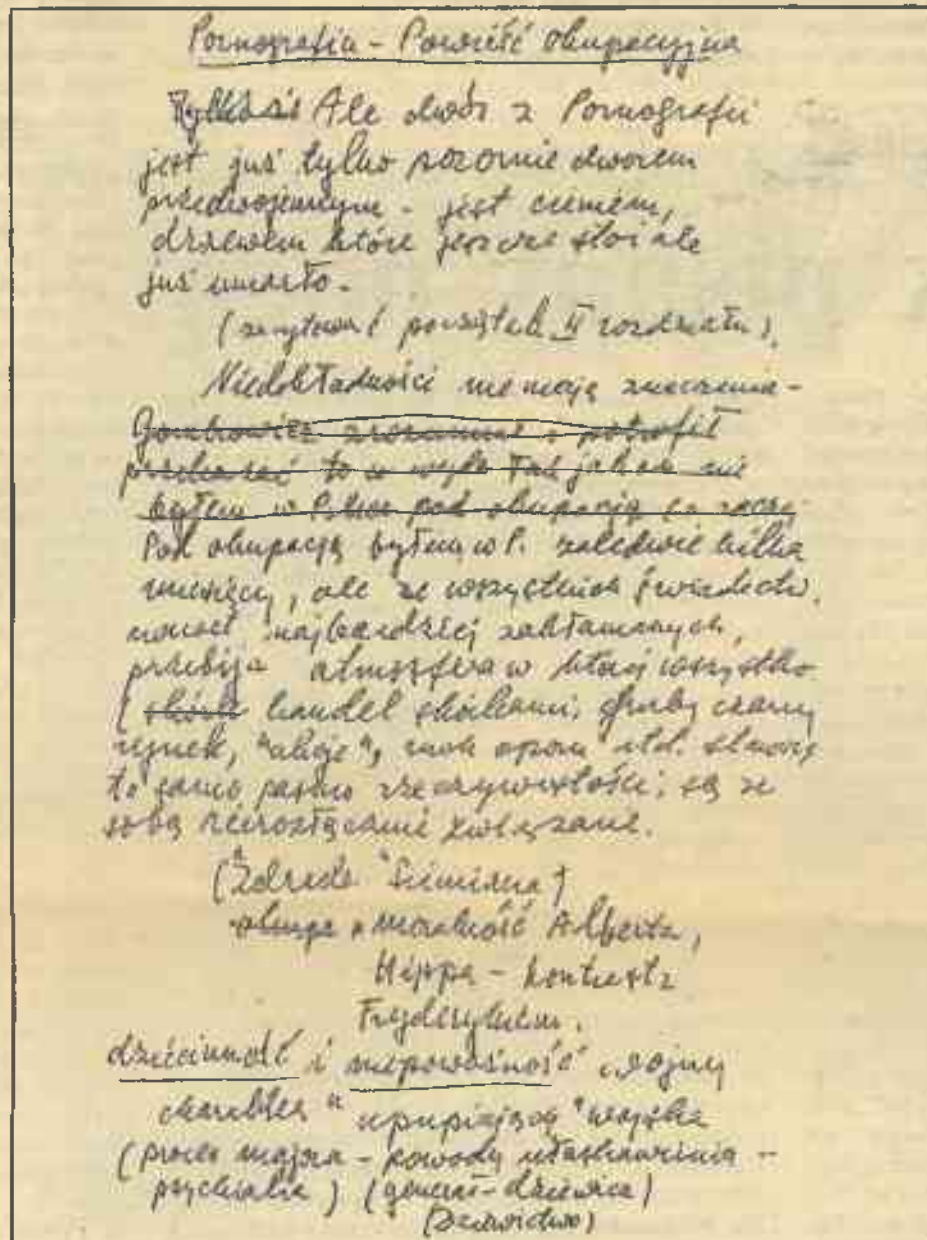 Pornografia - Powieść okupacyjna
Ale dwór z Pornografii
jest już tylko pozornie dworem
przedwojennym - jest cieniem,
drzewem które jeszcze stoi ale
już umarło.
(zacytować początek II rozdziału).
Niedokładności nie mają znaczenia -
Gombrowicz zrozumiał i potrafił
przekazać to w
byłem w Polsce pod okupacją
Pod okupacją byłem w P. zaledwie kilka
miesięcy, ale ze wszystkich świadectw,
nawet najbardziej zakłamanych,
przebija atmosfera w której wszystko
( handel skórkami, gruby czarny
rynek, "akcje", ruch oporu itd. stanowią
to samo pasmo rzeczywistości; są ze
sobą nierozłącznie związane.
(Zdrada Siemiana)
moralność Alberta,
Hippa - kontrast z
Fryderykiem.
dziecinność i niepoważność wojny
charakter "upupiający" wojska
(proces majora - powody ułaskawienia -
psychiatra) (generał-dziewica)